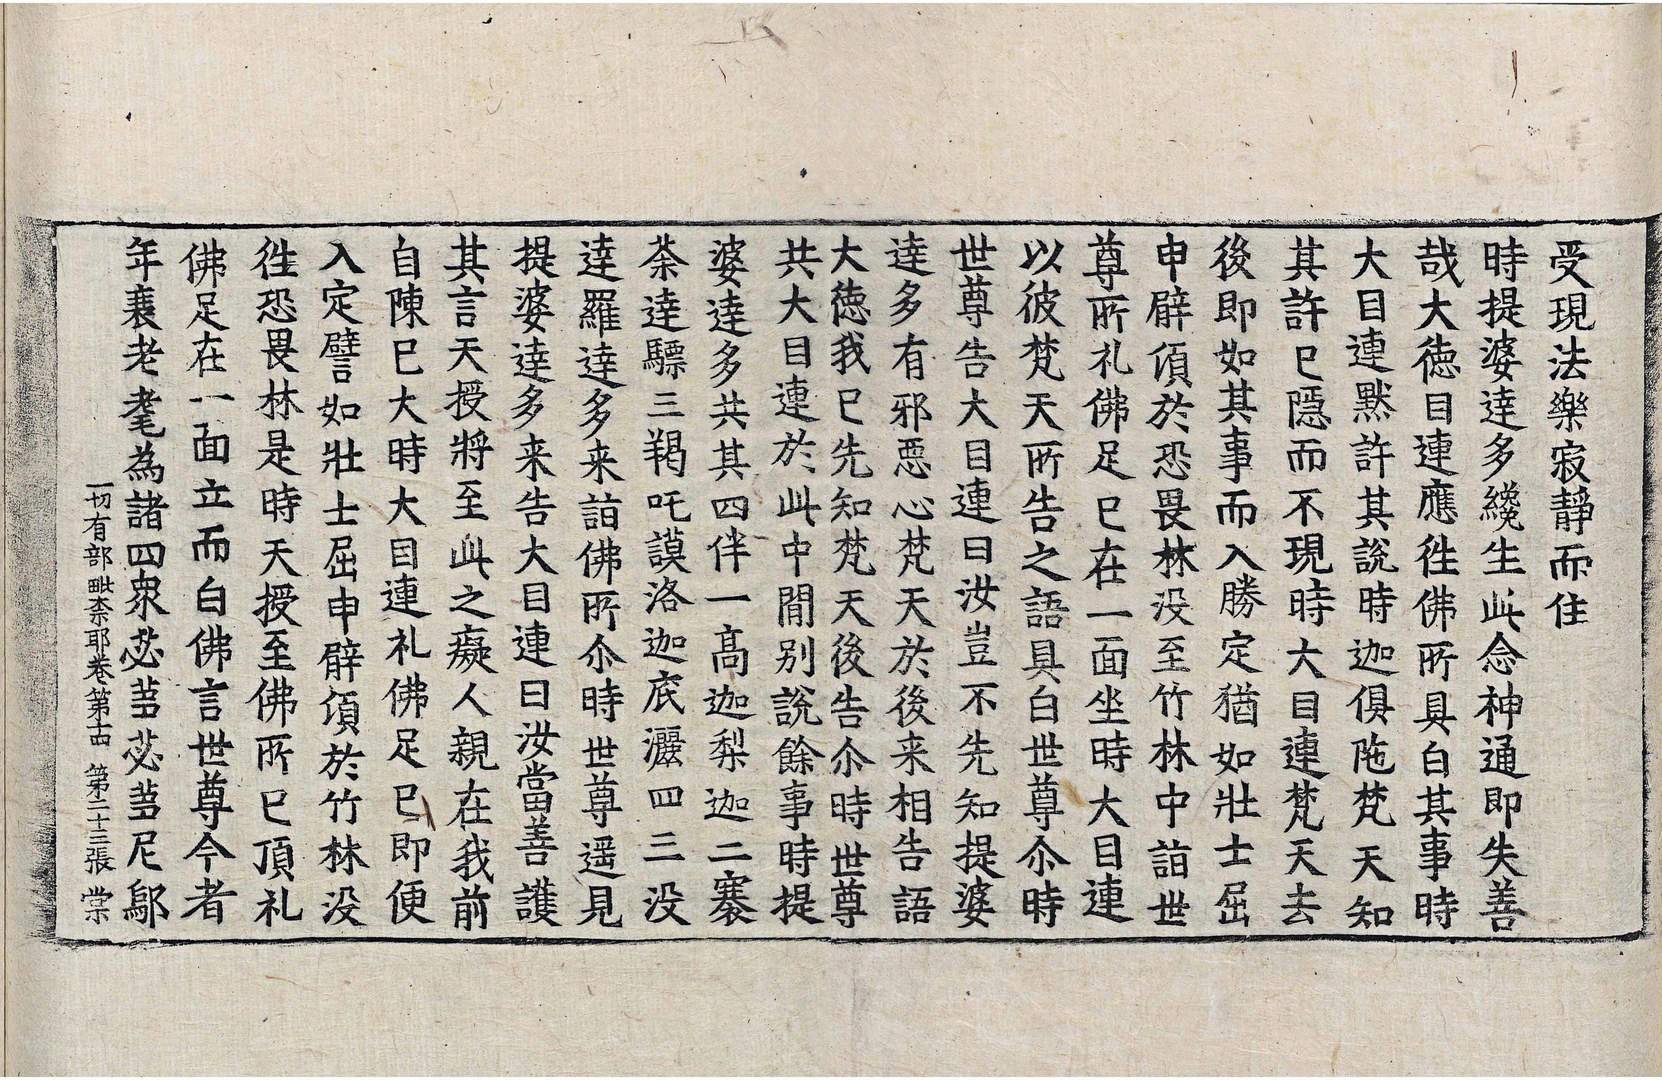 受現法樂寂靜而住
時提婆達多纔生此念神通即失善
哉大徳目連應徃佛所具白其事時
大目連黙許其說時迦俱陁梵天知
其許已隱而不現時大目連梵天去
後即如其事而入勝定猶如壯士屈
申臂頃於恐畏林没至竹林中詣世
尊所礼佛足已在一面坐時大目連
以彼梵天所告之語具白世尊尒時
世尊告大目連曰汝豈不先知提婆
達多有邪惡心梵天於後来相告語
大徳我已先知梵天後告尒時世尊
共大目連於此中間別說餘事時提
婆達多共其四伴一髙迦梨迦二褰
荼達驃三羯吒謨洛迦底灑四三没
達羅達多来詣佛所尒時世尊遥見
提婆達多来告大目連曰汝當善護
其言天授將至此之癡人親在我前
自陳已大時大目連礼佛足已即便
入定譬如壯士屈申臂頃於竹林没
徃恐畏林是時天授至佛所已頂礼
佛足在一面立而白佛言世尊今者
年衰老耄為諸四衆苾芻苾芻尼鄔
一切有部毗奈耶卷第十四 第二十三張 棠